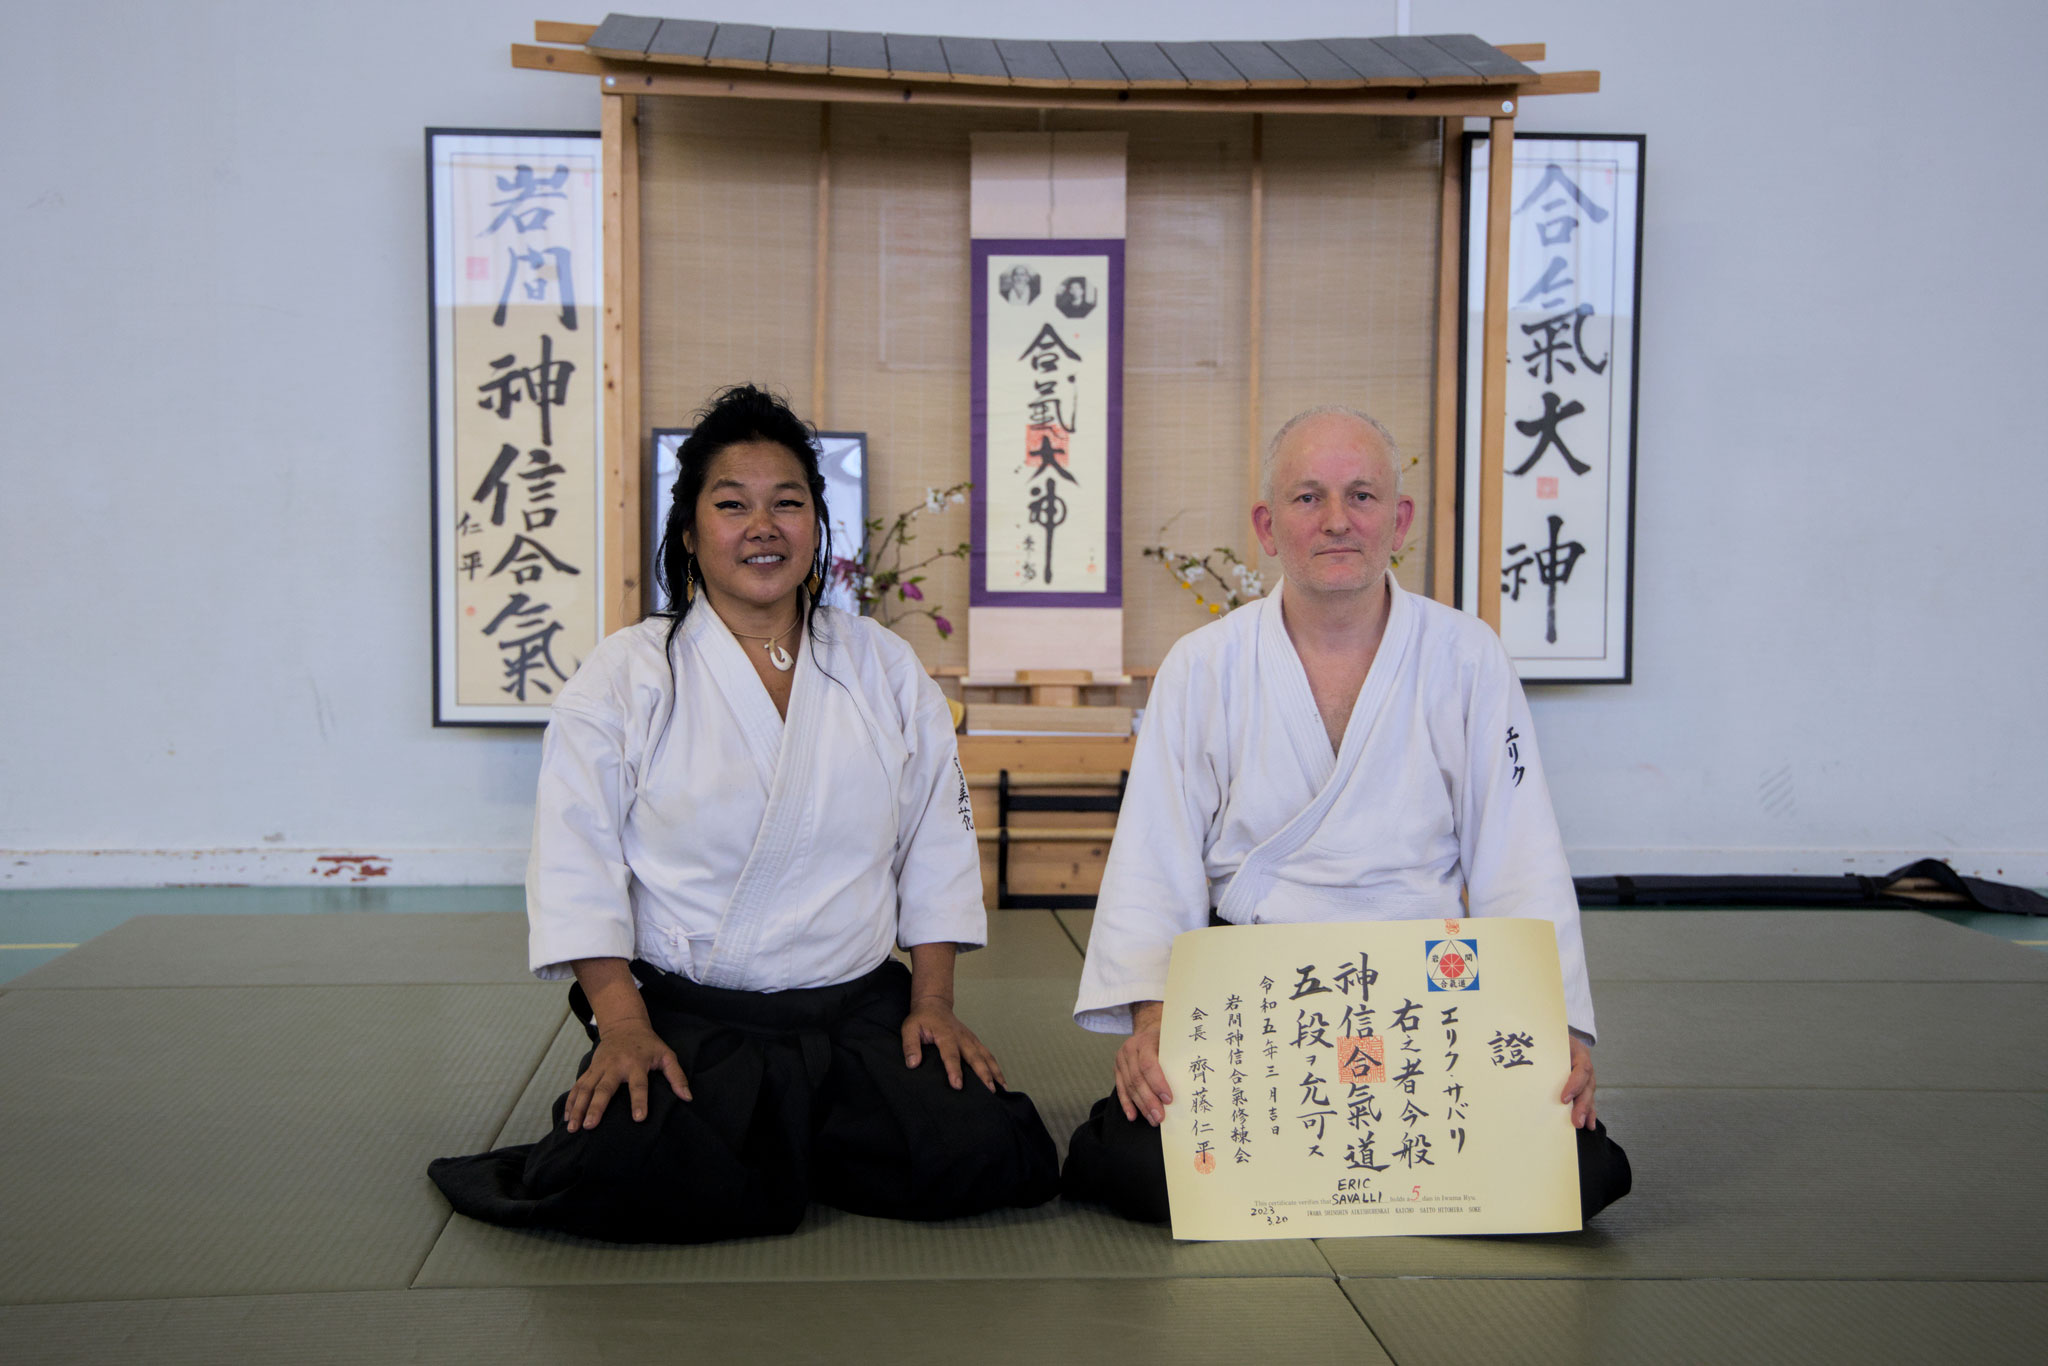 岩間神信合氣
仁平
合氣大神
合氣大神
エリク
美花
岩間
合氣道
證
エリク・サバリ
右之者今般
神信合氣道
五段ヲ允可ス
令和五年三月吉日
岩間神信合氣修練会
会長 齊藤仁平
This certificate verifies that ERIC SAVALLI holds a 5 dan in Iwama Ryu.
2023 3.20
IWAMA SHINSHIN AIKISHURENKAI KAICHO SAITO HITOHIRA SOKE